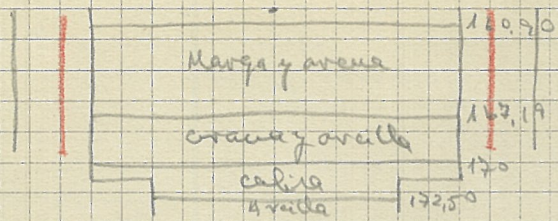 160,90
Marga y arena
167,19
Grava y arcilla
170
caliza
Arcilla
172,50